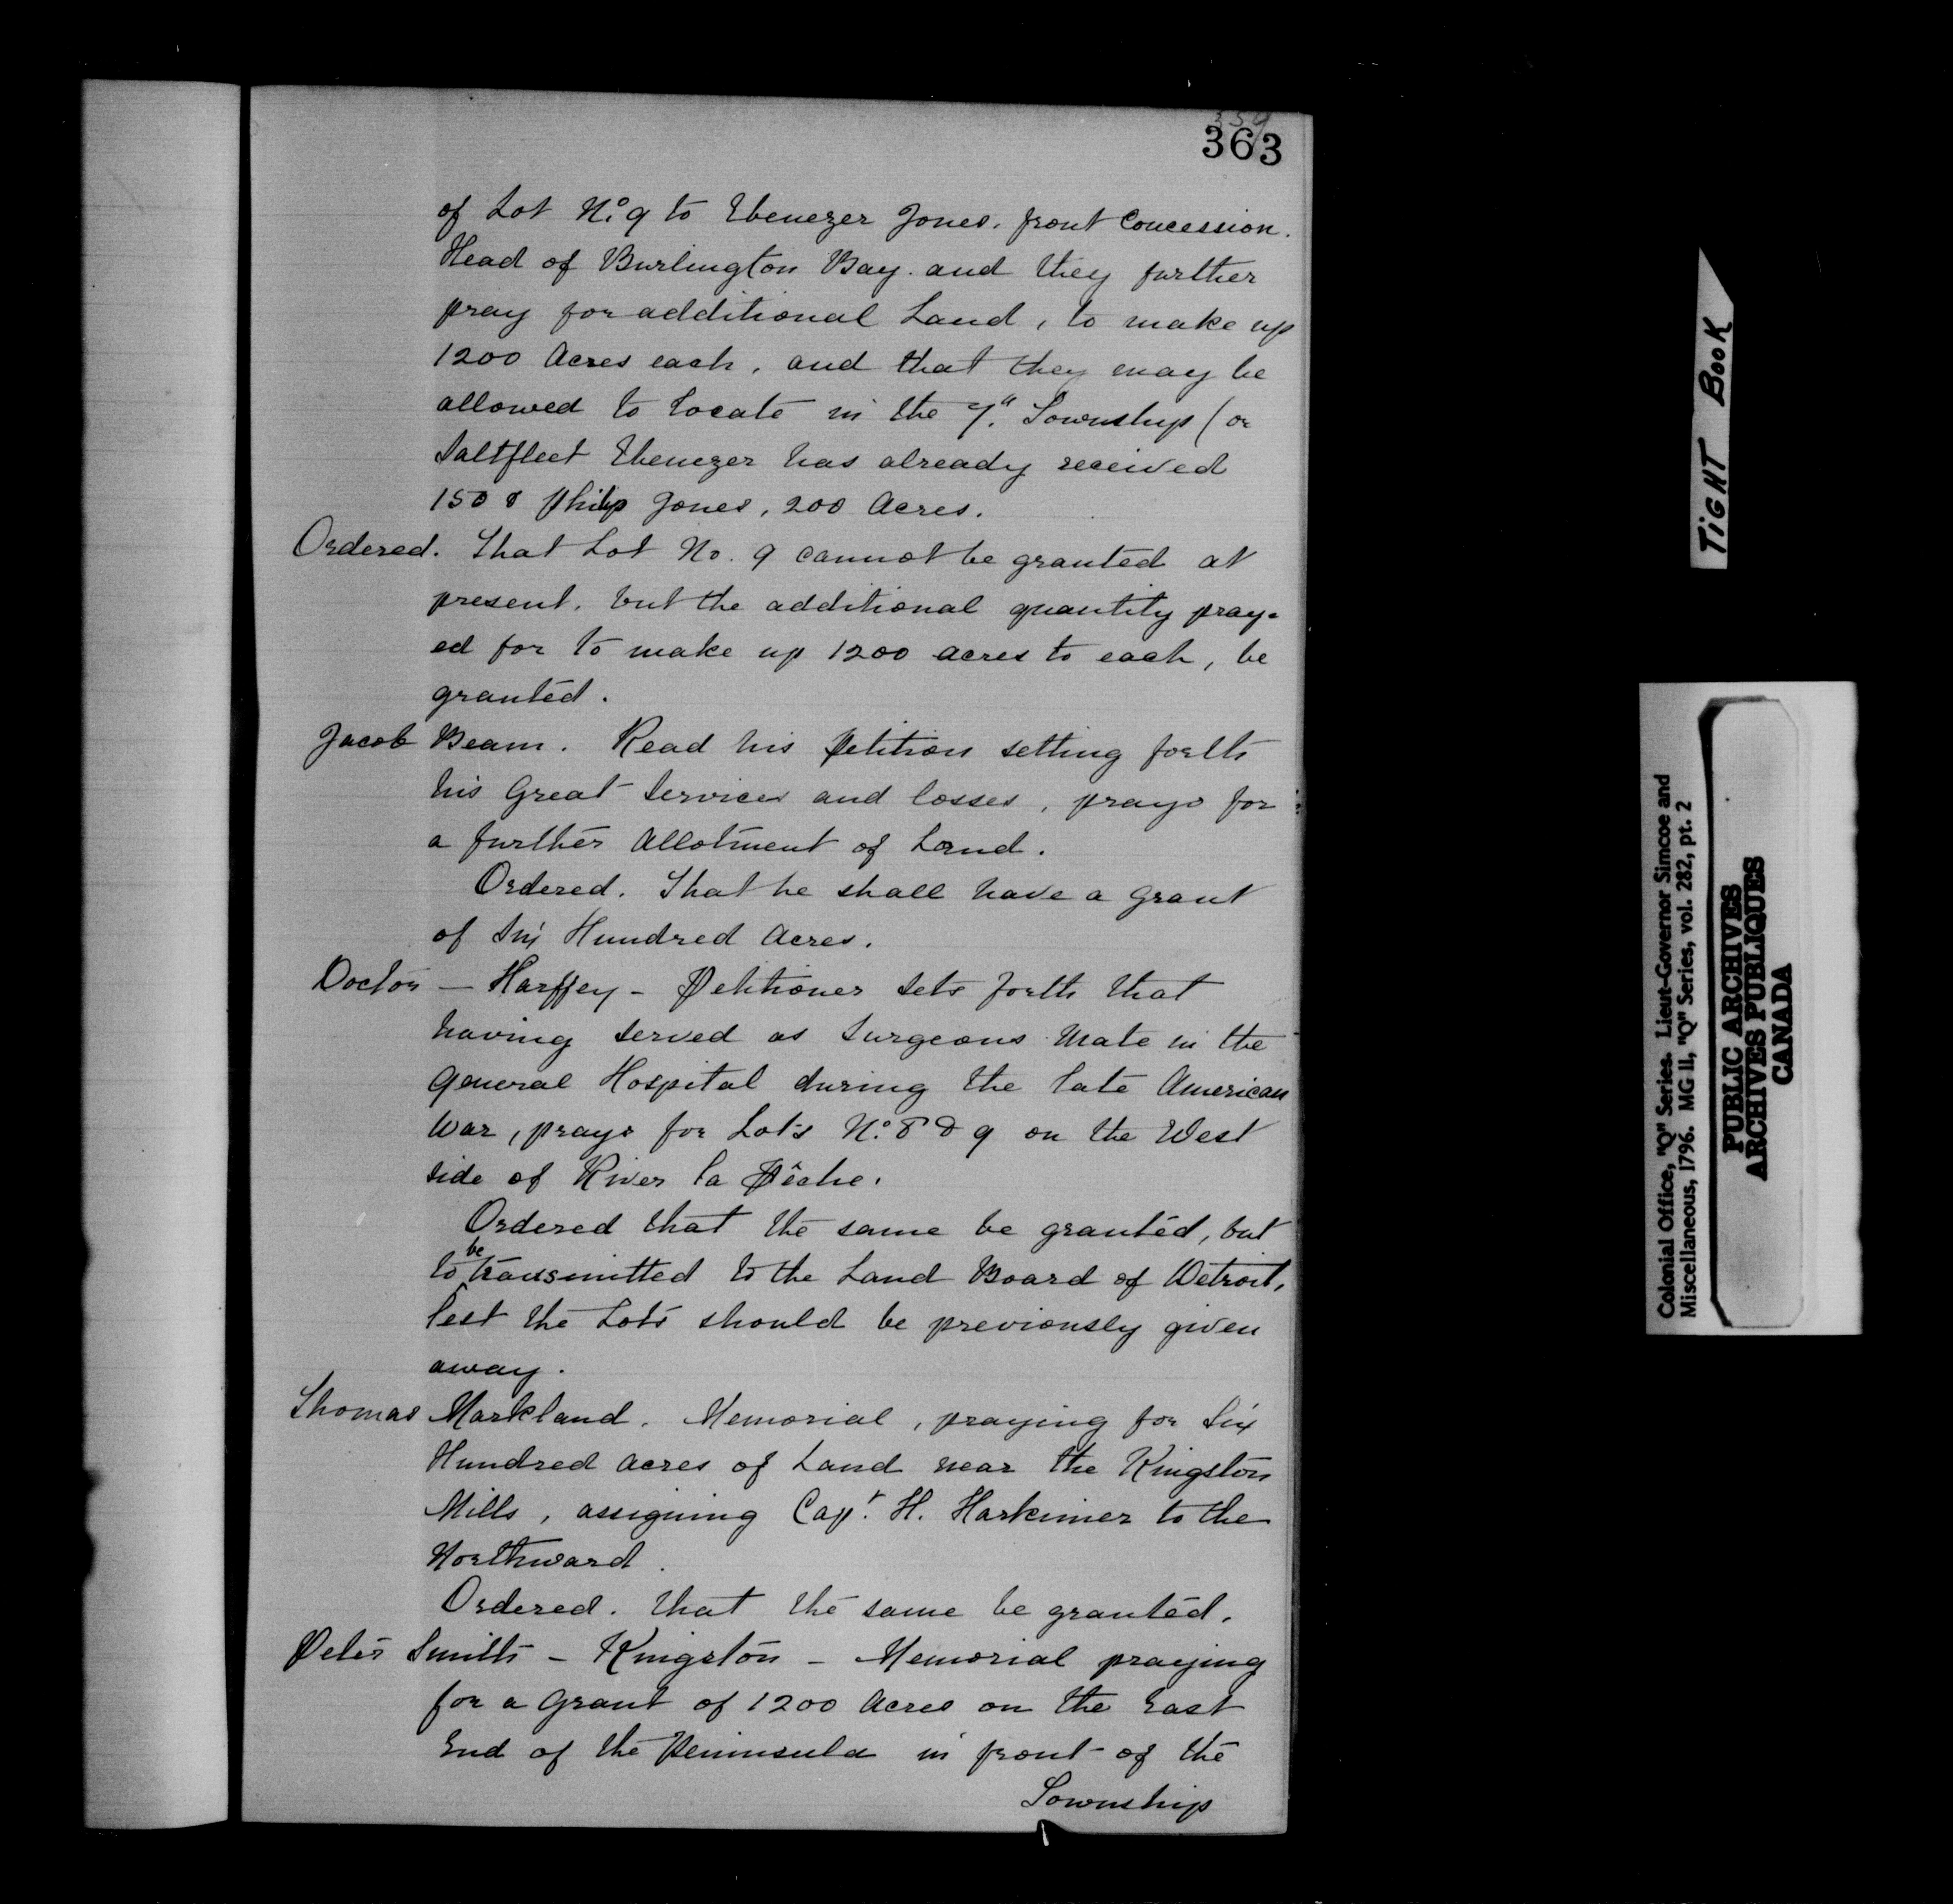 359
363
of Lot No. 9 to Ebenezer Jones. front Concession.
Head of Burlington Bay. and they further
pray for additional Land, to make up
1200 Acres each, and that they may be
allowed to locate in the 7." Township (or
Saltfleet Ebenezer has already received
150 & Philip Jones, 200 Acres.
Ordered. That Lot No. 9 cannot be granted at
present, but the additional quantity pray-
ed for to make up 1200 acres to each, be
granted.
Jacob Beam. Read his Petition setting forth
his Great Services and losses, prays for
a further Allotment of Land.
Ordered. That he shall have a Grant
of Six Hundred Acres.
Doctor — Harffey - Petitioner sets forth that
having served as Surgeons Mate in the
General Hospital during the late American
War, prays for Lots No. 8 & 9 on the West
side of River la Pêche.
Ordered that the same be granted, but
to be transmitted to the Land Board of Detroit,
lest the Lots should be previously given
away.
Thomas Markland. Memorial, praying for Six
Hundred acres of Land near the Kingston
Mills, assigning Capt. H. Harkimer to the
Northward.
Ordered. that the same be granted.
Peter Smith - Kingston - Memorial praying
for a Grant of 1200 Acres on the East
End of the Peninsula in front of the
Township
TIGHT BOOK
Colonial Office, "Q" Series. Lieut-Governor Simcoe and
Miscellaneous, 1796. MG 11, "Q" Series, vol. 282, pt. 2
PUBLIC ARCHIVES
ARCHIVES PUBLIQUES
CANADA